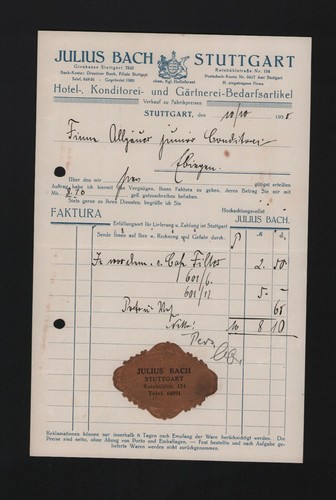 JULIUS BACH STUTTGART
Girokasse Stuttgart 7341
Bank-Konto: Dresdner Bank, Filiale Stuttgart
ehem. Kgl. Hoflieferant
Rotebühlstraße Nr. 124
Postscheck-Konto Nr. Amt Stuttgart
Hotel-, Konditorei- und Gärtnerei-Bedarfsartikel
Verkauf zu Fabrikpreisen
STUTTGART, den 10/10 193
Firma Allgäuer junior Conditorei
Ebingen
Über den mir gütigst erteilten
Auftrag habe ich hiermit das Vergnügen, Ihnen Faktura zu geben, deren Betrag Sie mir mit
Mk. 8.10 gefl. gutzuschreiben belieben.
Stets gerne zu Ihren Diensten, begrüße ich Sie
Hochachtungsvollst
FAKTURA JULIUS BACH.
Erfüllungsort für Lieferung u. Zahlung ist Stuttgart
Sende Ihnen auf Ihre w. Rechnung und Gefahr durch:
Filter 2. 50
601/6
601/12 5 –
60
Netto: M 8 10
JULIUS BACH
STUTTGART
Rotebühlstr. 124
Telef.
Reklamationen können nur innerhalb 8 Tagen nach Empfang der Ware berücksichtigt werden. Die
Preise sind netto, ohne Abzug von Porto und Emballagen. — Fest bestellte und nach Aufgabe ge-
lieferte Waren werden nicht zurückgenommen.